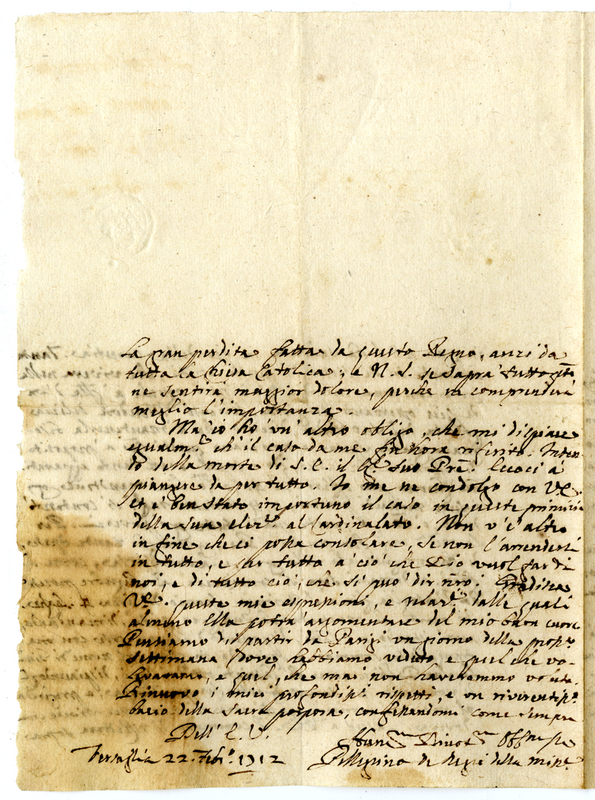 La gran perdita fatta da questo Regno, anzi da
tutta la Chiesa Catolica; e N. S. se saprà tutto
ne sentirà maggior dolore, perche ne comprenderà
meglio l'importanza.
Ma io hò un'altro obligo, che mi dispiace
egualm.te ch'il caso da me fin hora riferito. Intendo
della morte di S. E. il Sig.r suo Pre. Eccoci à
piangere da per tutto. Io me ne condolgo con V.E.
et è ben stato importuno il caso in queste primizie
della sua elez.e al Cardinalato. Non v'è altro
in fine che ci possa consolare, se non l'arrenderci
in tutto, e per tutto a ciò che Dio vuol far di
noi, e di tutto ciò, che si può dir nro. Gradisca
V.E. queste mie espressioni, e dalle quali
almeno Ella potrà argomentare del mio buon cuore.
Pensiamo di partir da Parigi un giorno della pross.a
settimana dove habbiamo veduto, e quel che
bramavamo, e quel, che mai non haveremmo voluto.
Rinuovo i miei profondiss.i rispetti, e un riverentiss.o
bacio della Sacra porpora, confessandomi come sempre
Dell' E. V.
Versaglia 22. Feb.o 1712
Hum.mo Divot.mo Obb.mo
Pellegrino de